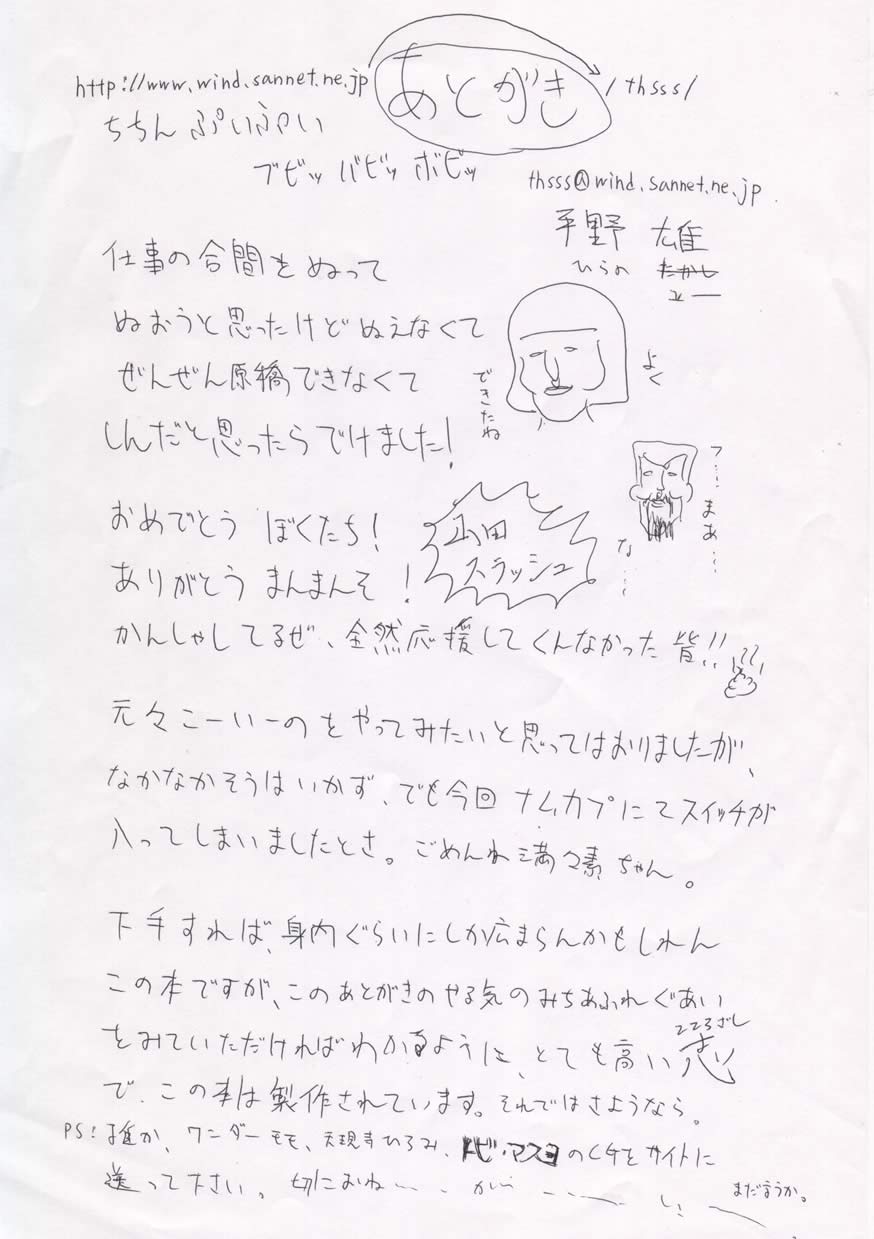 http://www.wind.sannet.ne.jp/thsss/
あとがき
ちちんぷいぷい
ブビッ バビッ ボビッ
thsss@wind.sannet.ne.jp
平野 雄
ひらの たかし
ユー
仕事の合間をぬって
ぬおうと思ったけどぬえなくて
ぜんぜん原稿できなくて
しんだと思ったらでけました!
よく
できたね
フ…まあ…
な…
おめでとう ぼくたち!
ありがとう まんまんそ!
山田
スラッシュ
かんしゃしてるぜ、全然応援してくんなかった皆!!
元々こーいーのをやってみたいと思ってはおりましたが、
なかなかそうはいかず、でも今回 ナムカプにてスイッチが
入ってしまいましたとさ。ごめんね満々素ちゃん。
下手すれば、身内ぐらいにしか広まらんかもしれん
この本ですが、このあとがきのやる気のみちあふれぐあい
をみていただければわかるように、とても高い志
こころざし
で、この本は製作されています。それではさようなら。
PS:誰か、ワンダーモモ、天現寺ひろみ、トビ・マスヨのCGをサイトに
送って下さい。切におね… が…
し…
まだまうか。